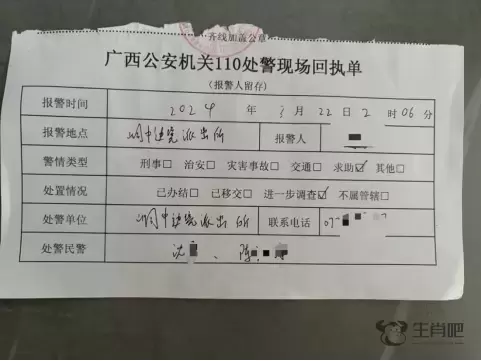 齐线加盖公章
广西公安机关110处警现场回执单
(报警人留存)
报警时间 2024 年 3 月 22 日 2 时 06 分
报警地点 峒中边境派出所 报警人
警情类型 刑事□ 治安□ 灾害事故□ 交通□ 求助☑ 其他□
处置情况 已办结□ 已移交□ 进一步调查☑ 不属管辖□
处警单位 峒中边境派出所 联系电话 07
处警民警 沈 、陈
生肖吧